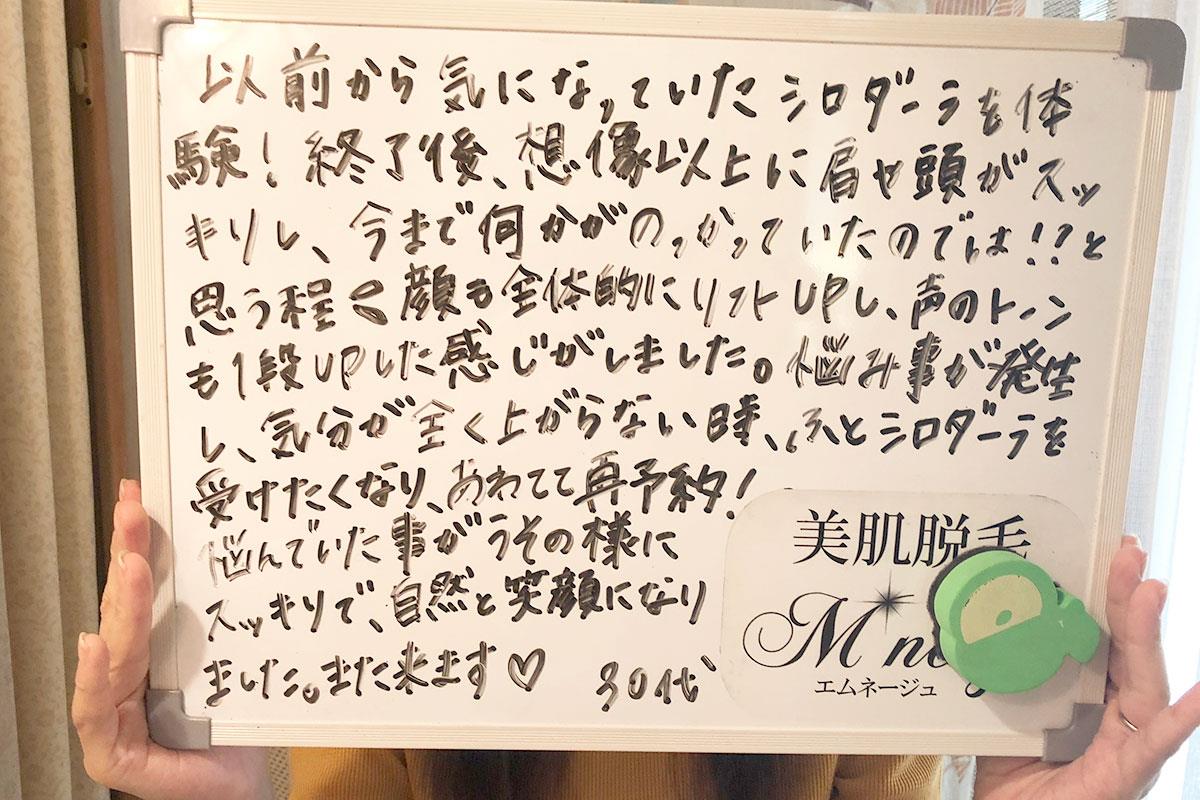 以前から気になっていたシロダーラを体
験!終了後、想像以上に肩や頭がスッ
キリし、今まで何かがのっかっていたのでは!?と
思う程。顔も全体的にリフトUPし、声のトーン
も1段UPした感じがしました。悩み事が発生
し、気分が全く上がらない時、ふとシロダーラを
受けたくなり、あわてて再予約!
悩んでいた事がうその様に
スッキリで、自然と笑顔になり
ました。また来ます♡ 30代
美肌脱毛
M'ne
エムネージュ